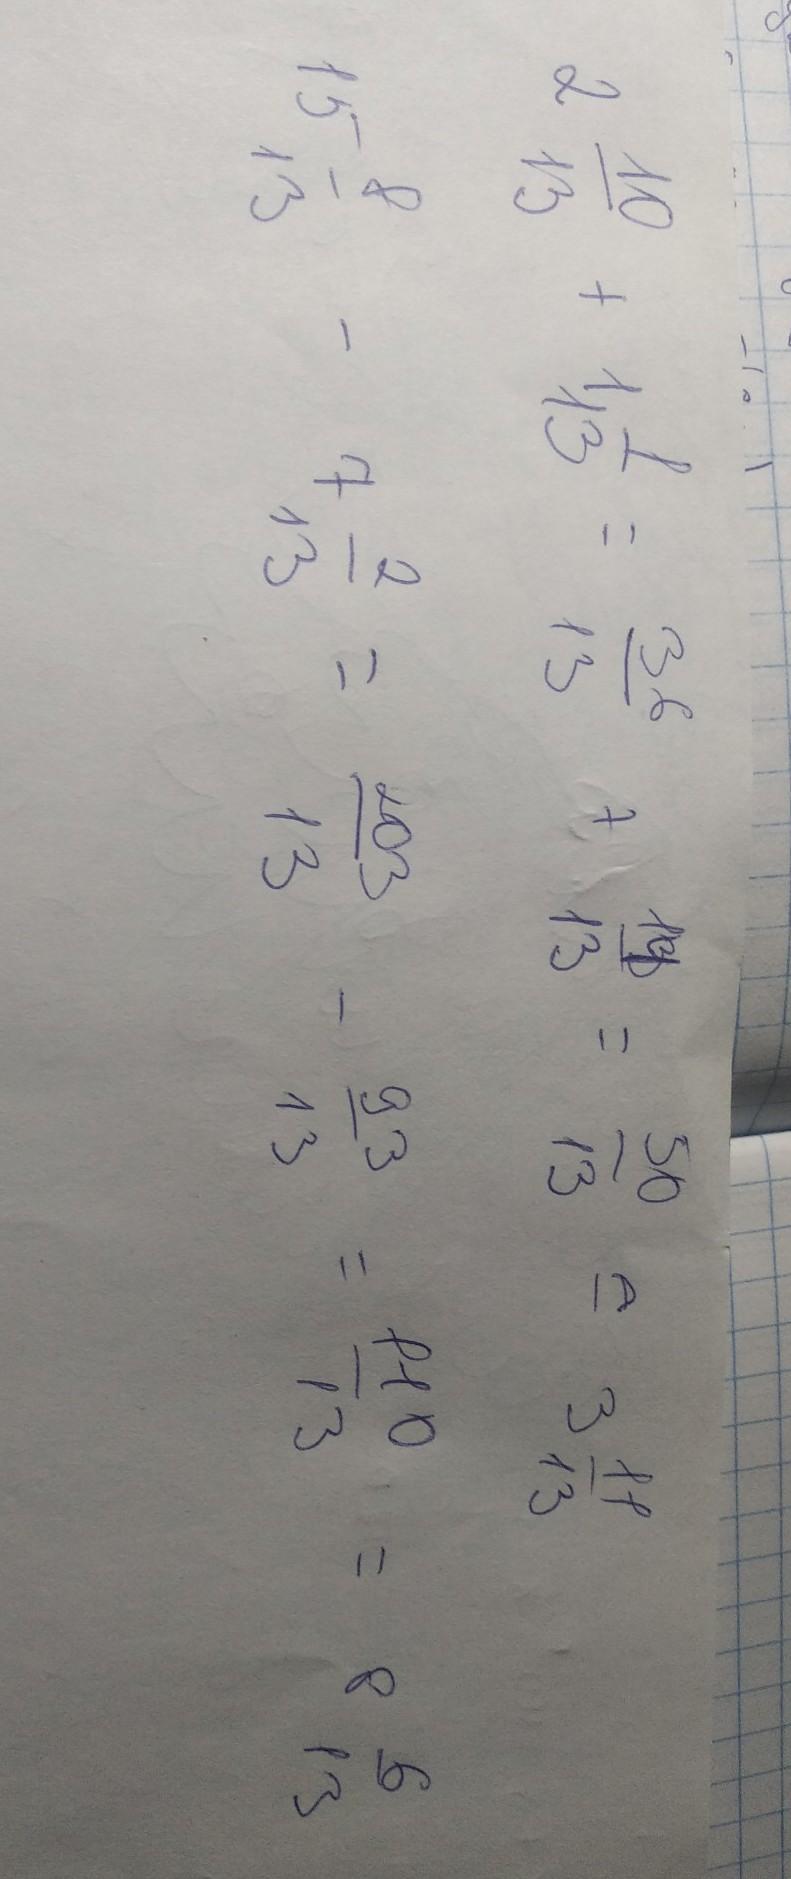 2 10/13 + 1 1/13 = 36/13 + 14/13 = 50/13 = 3 11/13
15 8/13 - 7 2/13 = 203/13 - 93/13 = 110/13 = 8 6/13